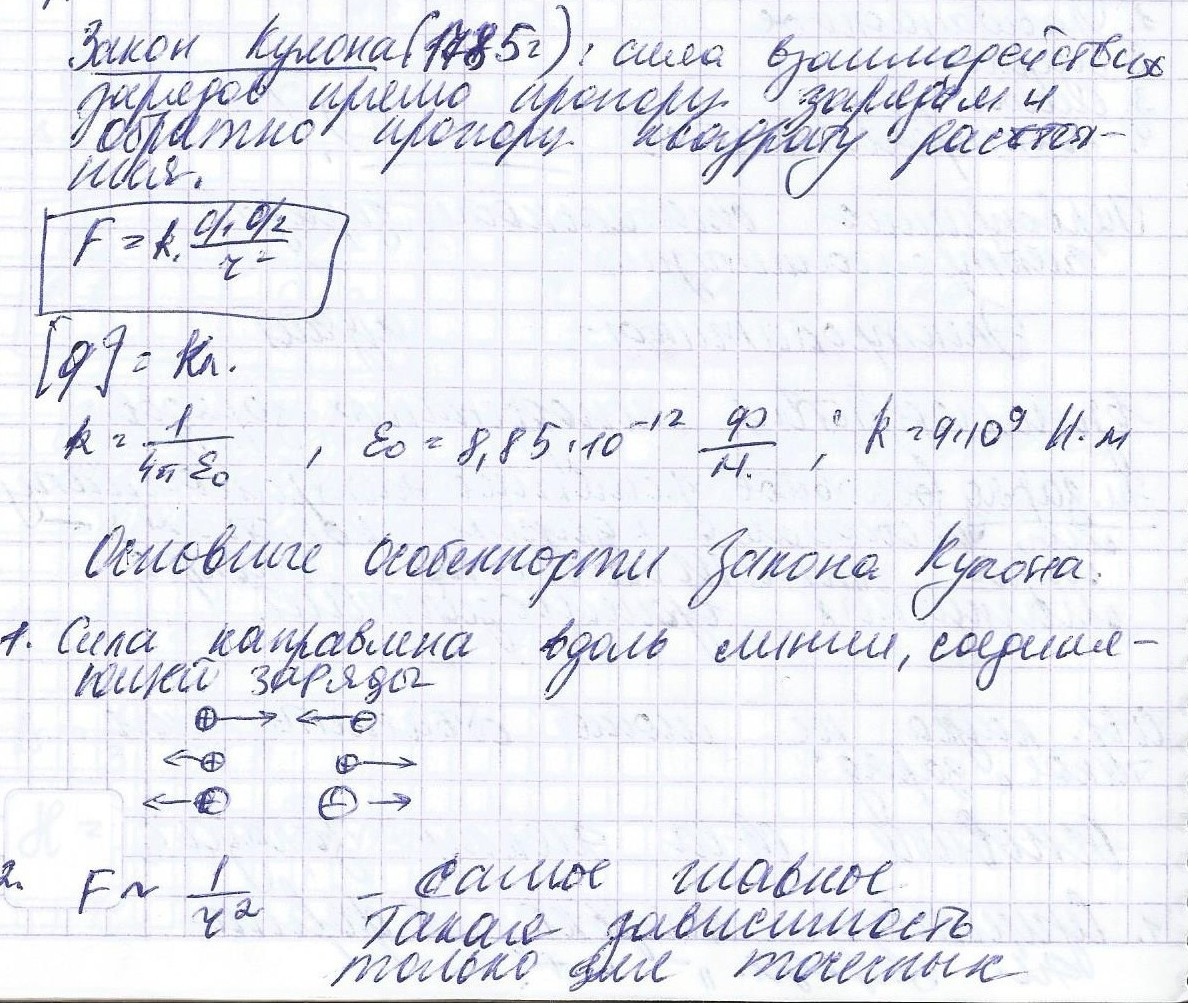 Закон Кулона (1785г): сила взаимодействия
зарядов прямо пропорц. зарядам и
обратно пропорц. квадрату расстоя-
ния.
F = k · q₁ q₂ / r²
[q] = Кл.
k = 1 / 4π ε₀ , ε₀ = 8,85 · 10⁻¹² Ф / м. ; k = 9·10⁹ Н·м
Основные особенности Закона Кулона.
1. Сила направлена вдоль линии, соединя-
ющей заряды
⊕→ ←⊖
←⊕ ⊕→
←⊖ ⊖→
2. F ~ 1 / r² – самое главное.
Такая зависимость
только для точечных